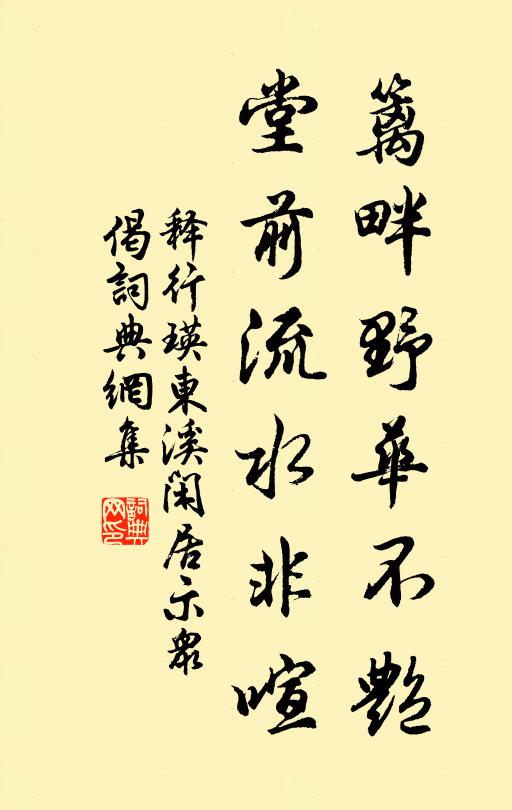 篱畔野華不艷
堂前流水非喧
释行瑛東溪闲居示衆
偈詞典網集
詞典网印